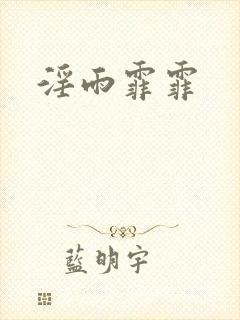 淫雨霏霏
藍明宇